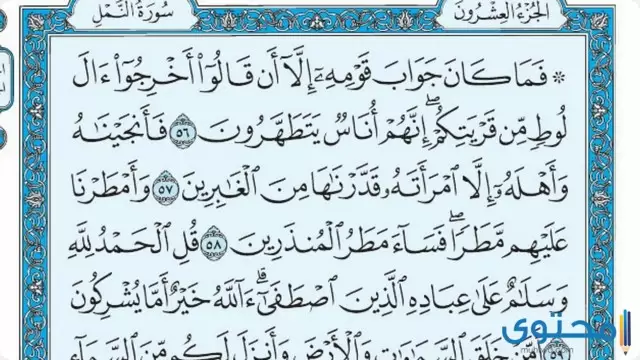 الجُزْءُ العِشْرُونَ
سُورَةُ النَّمْلِ
۞ فَمَا كَانَ جَوَابَ قَوْمِهِۦٓ إِلَّآ أَن قَالُوٓا۟ أَخْرِجُوٓا۟ ءَالَ
لُوطٍ مِّن قَرْيَتِكُمْ ۖ إِنَّهُمْ أُنَاسٌ يَتَطَهَّرُونَ ٥٦ فَأَنجَيْنَٰهُ
وَأَهْلَهُۥٓ إِلَّا ٱمْرَأَتَهُۥ قَدَّرْنَٰهَا مِنَ ٱلْغَٰبِرِينَ ٥٧ وَأَمْطَرْنَا
عَلَيْهِم مَّطَرًا ۖ فَسَآءَ مَطَرُ ٱلْمُنذَرِينَ ٥٨ قُلِ ٱلْحَمْدُ لِلَّهِ
وَسَلَٰمٌ عَلَىٰ عِبَادِهِ ٱلَّذِينَ ٱصْطَفَىٰٓ ۗ ءَآللَّهُ خَيْرٌ أَمَّا يُشْرِكُونَ
خَلَقَ ٱلسَّمَٰوَٰتِ وَٱلْأَرْضَ وَأَنزَلَ لَكُم مِّنَ ٱلسَّمَآءِ
محتوى